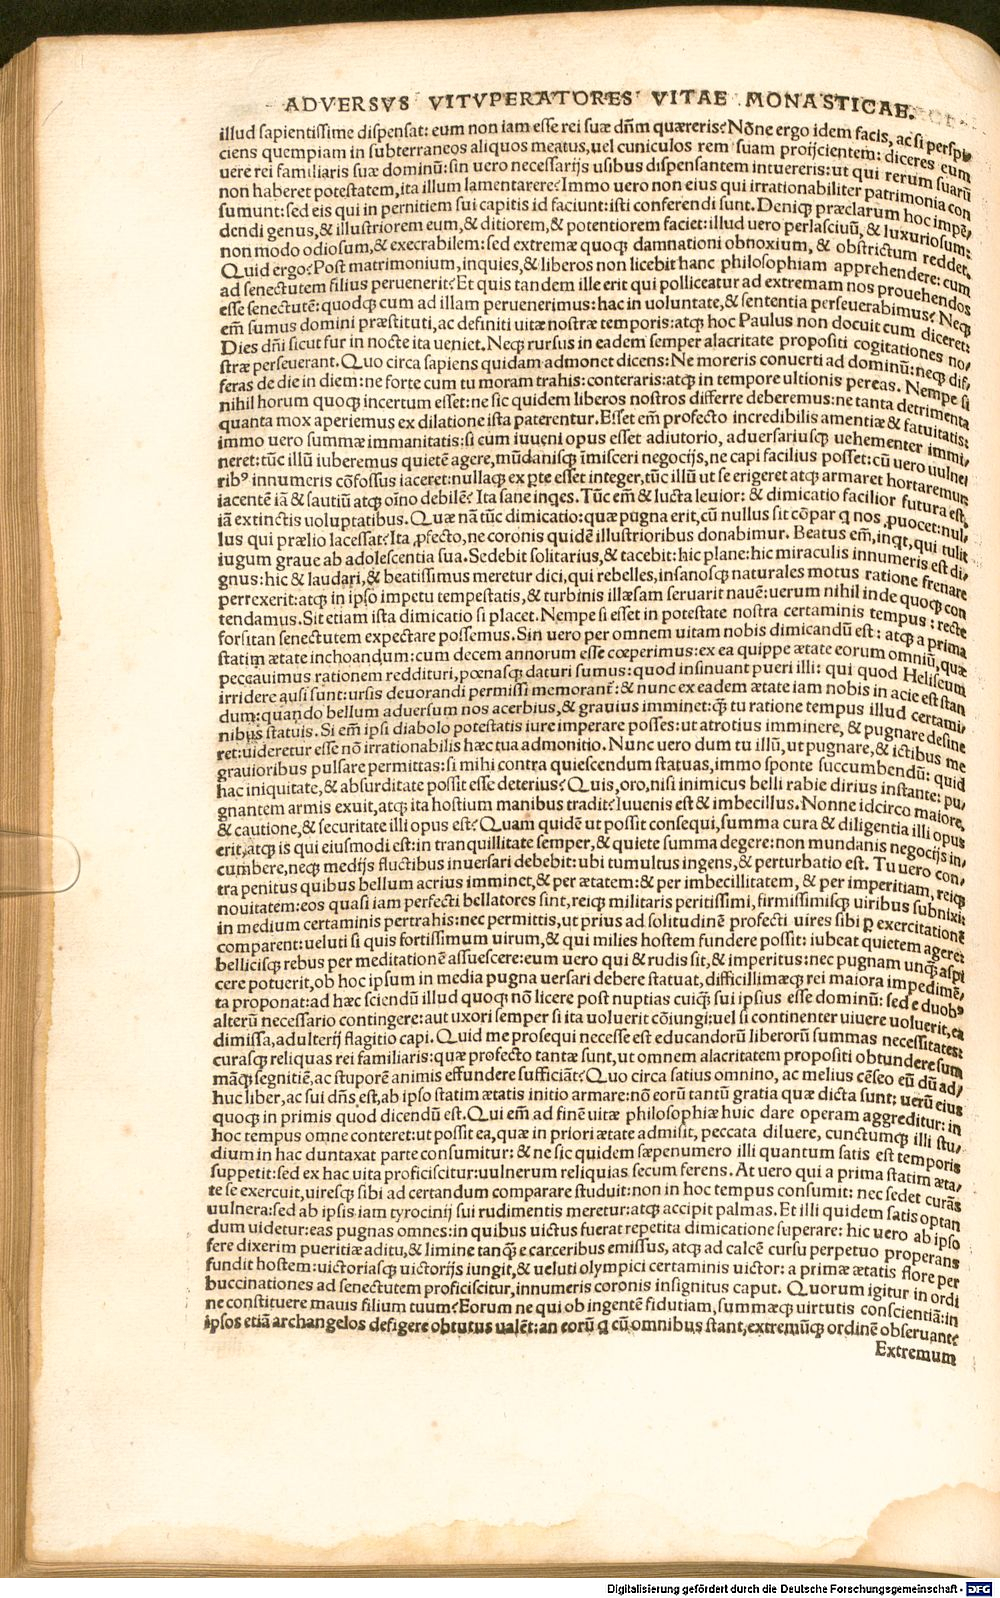 ADVERSVS VITVPERATORES VITAE MONASTICAE.
illud sapientissime dispensat: eum non iam esse rei suæ dñm quæreris? Nõne ergo idem facis, ac si perspi⸗
ciens quempiam in subterraneos aliquos meatus, uel cuniculos rem suam proijcientem: diceres eum
uere rei familiaris suæ dominũ: sin uero necessarijs usibus dispensantem intuereris: ut qui rerum suarũ
non haberet potestatem, ita illum lamentarere? Immo uero non eius qui irrationabiliter patrimonia con
sumunt: sed eis qui in pernitiem sui capitis id faciunt: isti conferendi sunt. Deniqꝫ præclarum hoc impẽ⸗
dendi genus, & illustriorem eum, & ditiorem, & potentiorem faciet: illud uero perlasciuũ, & luxuriosum:
non modo odiosum, & execrabilem: sed extremæ quoqꝫ damnationi obnoxium, & obstrictum reddet.
Quid ergo? Post matrimonium, inquies, & liberos non licebit hanc philosophiam apprehendere: cum
ad senectutem filius peruenerit? Et quis tandem ille erit qui polliceatur ad extremam nos prouehendos
esse senectutẽ: quodqꝫ cum ad illam peruenerimus: hac in uoluntate, & sententia perseuerabimus? Neqꝫ
em̃ sumus domini præstituti, ac definiti uitæ nostræ temporis: atqꝫ hoc Paulus non docuit cum diceret:
Dies dñi sicut fur in nocte ita ueniet. Neqꝫ rursus in eadem semper alacritate propositi cogitationes no⸗
stræ perseuerant. Quo circa sapiens quidam admonet dicens: Ne moreris conuerti ad dominũ: neqꝫ dif⸗
feras de die in diem: ne forte cum tu moram trahis: conteraris: atqꝫ in tempore ultionis pereas. Nempe si
nihil horum quoqꝫ incertum esset: ne sic quidem liberos nostros differre deberemus: ne tanta detrimenta
quanta mox aperiemus ex dilatione ista paterentur. Esset em̃ profecto incredibilis amentiæ & fatuitatis:
immo uero summæ immanitatis: si cum iuueni opus esset adiutorio, aduersariusqꝫ uehementer immi⸗
neret: tũc illũ iuberemus quietẽ agere, mũdanisqꝫ ĩmisceri negocijs, ne capi facilius posset: cũ uero uulne⸗
ribꝰ innumeris cõfossus iaceret: nullaqꝫ ex ꝑte esset integer, tũc illũ ut se erigeret atqꝫ armaret hortaremur:
iacentẽ iã & sautiũ atqꝫ oĩno debilẽ? Ita sane inqes. Tũc em̃ & lucta leuior: & dimicatio facilior futura est,
iã extinctis uoluptatibus. Quæ nã tũc dimicatio: quæ pugna erit, cũ nullus sit cõpar q nos ꝓuocet: nul⸗
lus qui prælio lacessat? Ita ꝓfecto, ne coronis quidẽ illustrioribus donabimur. Beatus em̃, inqt, qui tulit
iugum graue ab adolescentia sua. Sedebit solitarius, & tacebit: hic plane: hic miraculis innumeris est di⸗
gnus: hic & laudari, & beatissimus meretur dici, qui rebelles, insanosqꝫ naturales motus ratione frenare
perrexerit: atqꝫ in ipso impetu tempestatis, & turbinis illæsam seruarit nauẽ: uerum nihil inde quoqꝫ con
tendamus. Sit etiam ista dimicatio si placet. Nempe si esset in potestate nostra certaminis tempus: recte
forsitan senectutem expectare possemus. Sin uero per omnem uitam nobis dimicandũ est: atqꝫ a prima
statim ætate inchoandum: cum decem annorum esse cœperimus: ex ea quippe ætate eorum omniũ, quæ
peccauimus rationem reddituri, pœnasqꝫ daturi sumus: quod insinuant pueri illi: qui quod Heliseum
irridere ausi sunt: ursis deuorandi permissi memorant̃: & nunc ex eadem ætate iam nobis in acie est stan
dum: quando bellum aduersum nos acerbius, & grauius imminet: quã tu ratione tempus illud certami⸗
nibus statuis. Si em̃ ipsi diabolo potestatis iure imperare posses: ut atrotius imminere, & pugnare desine
ret: uideretur esse nõ irrationabilis hæc tua admonitio. Nunc uero dum tu illũ, ut pugnare, & ictibus me
grauioribus pulsare permittas: si mihi contra quiescendum statuas, immo sponte succumbendũ: quid
hac iniquitate, & absurditate possit esse deterius? Quis, oro, nisi inimicus belli rabie dirius instante: pu⸗
gnantem armis exuit, atqꝫ ita hostium manibus tradit? Iuuenis est & imbecillus. Nonne idcirco maiore,
& cautione, & securitate illi opus est? Quam quidẽ ut possit consequi, summa cura & diligentia illi opus
erit, atqꝫ is qui eiusmodi est: in tranquillitate semper, & quiete summa degere: non mundanis negocijs in⸗
cumbere, neqꝫ medijs fluctibus inuersari debebit: ubi tumultus ingens, & perturbatio est. Tu uero con⸗
tra penitus quibus bellum acrius imminet, & per ætatem: & per imbecillitatem, & per imperitiam, reiqꝫ
nouitatem: eos quasi iam perfecti bellatores sint, reiqꝫ militaris peritissimi, firmissimisqꝫ uiribus subnixi:
in medium certaminis pertrahis: nec permittis, ut prius ad solitudinẽ profecti uires sibi ꝑ exercitationẽ
comparent: ueluti si quis fortissimum uirum, & qui milies hostem fundere possit: iubeat quietem agere:
bellicisqꝫ rebus per meditationẽ assuescere: eum uero qui & rudis sit, & imperitus: nec pugnam unqꝫ̃ aspi
cere potuerit, ob hoc ipsum in media pugna uersari debere statuat, difficillimæqꝫ rei maiora impedimẽ⸗
ta proponat: ad hæc sciendũ illud quoqꝫ nõ licere post nuptias cuiqꝫ̃ sui ipsius esse dominũ: sed e duobꝰ
alterũ necessario contingere: aut uxori semper si ita uoluerit cõiungi: uel si continenter uiuere uoluerit, ea
dimissa, adulterij flagitio capi. Quid me prosequi necesse est educandorũ liberorũ summas necessitates:
curasqꝫ reliquas rei familiaris: quæ profecto tantæ sunt, ut omnem alacritatem propositi obtundere sum
mãqꝫ segnitiẽ, ac stuporẽ animis effundere sufficiãt? Quo circa satius omnino, ac melius cẽseo eũ dũ ad⸗
huc liber, ac sui dñs est, ab ipso statim ætatis initio armare: nõ eorũ tantũ gratia quæ dicta sunt: uerũ eius
quoqꝫ in primis quod dicendũ est. Qui em̃ ad finẽ uitæ philosophiæ huic dare operam aggreditur: in
hoc tempus omne conteret: ut possit ea, quæ in priori ætate admisit, peccata diluere, cunctumqꝫ illi stu⸗
dium in hac duntaxat parte consumitur: & ne sic quidem sæpenumero illi quantum satis est temporis
suppetit: sed ex hac uita proficiscitur: uulnerum reliquias secum ferens. At uero qui a prima statim æta⸗
te se exercuit, uiresqꝫ sibi ad certandum comparare studuit: non in hoc tempus consumit: nec sedet curãs
uulnera: sed ab ipsis iam tyrocinij sui rudimentis meretur: atqꝫ accipit palmas. Et illi quidem satis optan
dum uidetur: eas pugnas omnes: in quibus uictus fuerat repetita dimicatione superare: hic uero ab ipso
fere dixerim pueritiæ aditu, & limine tanqꝫ̃ e carceribus emissus, atqꝫ ad calcẽ cursu perpetuo properans
fundit hostem: uictoriasqꝫ uictorijs iungit, & ueluti olympici certaminis uictor: a primæ ætatis flore per
buccinationes ad senectutem proficiscitur, innumeris coronis insignitus caput. Quorum igitur in ordi
ne constituere mauis filium tuum? Eorum ne qui ob ingentẽ fidutiam, summæqꝫ uirtutis conscientiã: in
ipsos etiã archangelos defigere obtutus ualẽt: an eorũ q cũ omnibus stant, extremũqꝫ ordinẽ obseruant?
Extremum
Digitalisierung gefördert durch die Deutsche Forschungsgemeinschaft - DFG